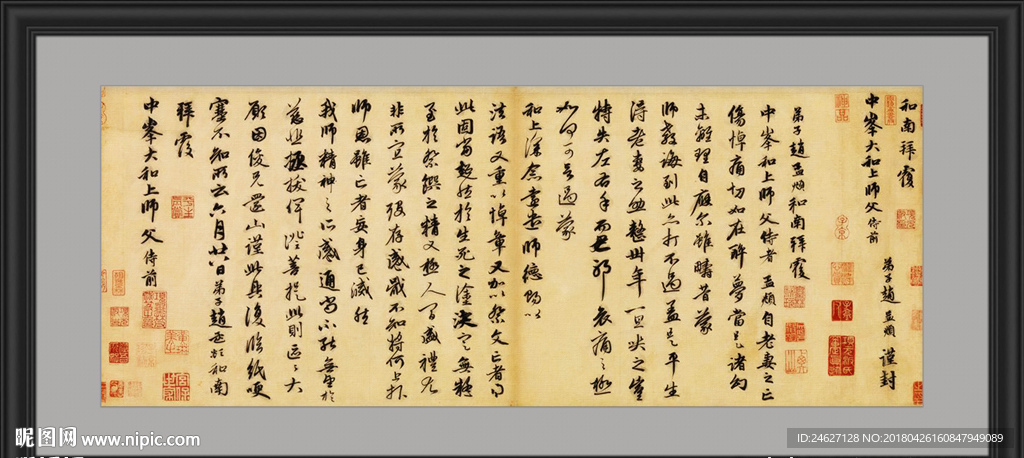 和南拜覆
中峯大和上師父侍前
弟子趙孟頫謹封
弟子趙孟頫和南拜覆
中峯和上師父侍者孟頫自老妻之亡
傷悼痛切如在醉夢當是諸幻
未離理自應尔雖疇昔蒙
師教誨到此亦打不過盖是平生
得老妻之助整卅年一旦哭之豈
特失左右手而已耶哀痛之極
如何可言過蒙
和上深念遠遣師德賜以
法語又重以悼章又加以祭文亡者得
此固當超然於生死之塗決定無疑
至於祭饌之精又極人間盛禮尤
非所宜蒙殁存感戴不知將何上報
師恩雖亡者妄身已滅然
我師精神之所感通尚不能無望於
慈悲拯拔俾證菩提此則區區大
願因俊兄還山謹此具復臨紙哽
塞不知所云六月廿八日弟子趙孟頫和南
拜覆
中峯大和上師父侍前
昵图网 www.nipic.com
ID:24627128 NO:20180426160847949089